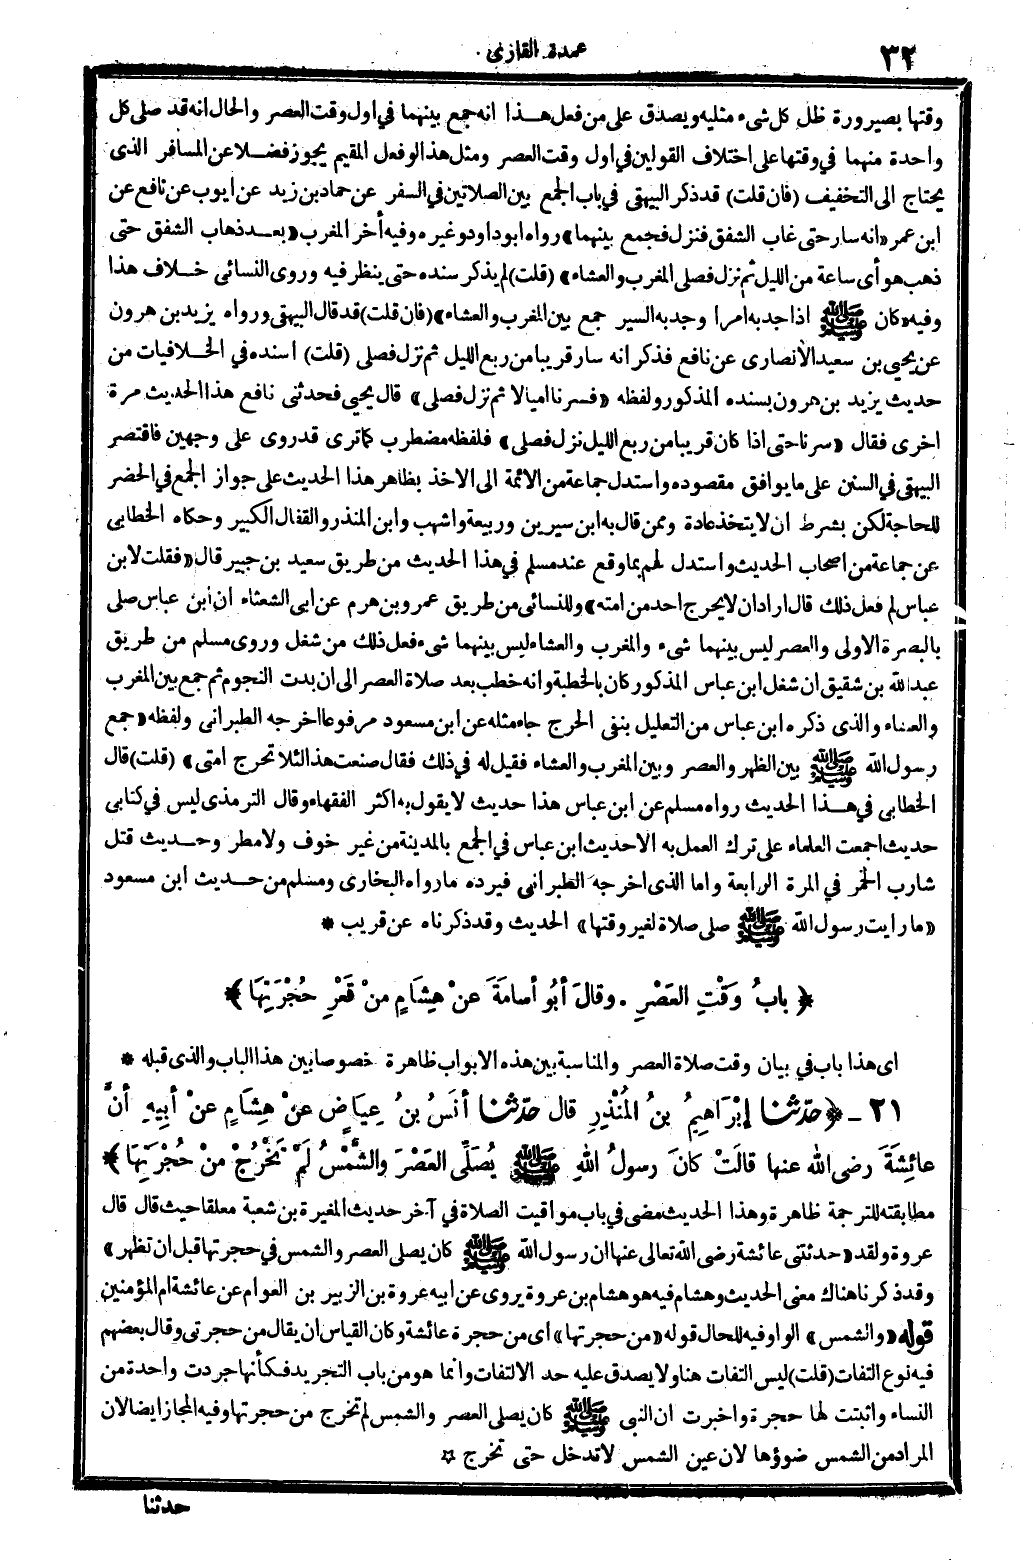 ٣٢
عمدة القارئ
وقتها بصيرورة ظل كل شيء مثليه ويصدق على من فعل هذا انه جمع بينهما في اول وقت العصر والحال انه قد صلى كل
واحدة منهما في وقتها على اختلاف القولين في اول وقت العصر ومثل هذا لو فعل المقيم يجوز فضلا عن المسافر الذى
يحتاج الى التخفيف (فان قلت) قد ذكر البيهقى في باب الجمع بين الصلاتين في السفر عن حماد بن زيد عن ايوب عن نافع عن
ابن عمر «انه سار حتى غاب الشفق فنزل فجمع بينهما» رواه ابو داود وغيره وفيه أخر المغرب «بعد ذهاب الشفق حتى
ذهب هوأى ساعة من الليل ثم نزل فصلى المغرب والعشاء» (قلت) لم يذكر سنده حتى ينظر فيه وروى النسائى خلاف هذا
وفيه «كان ﷺ اذا جد به امرا وجد به السير جمع بين المغرب والعشاء» (فان قلت) قد قال البيهقى ورواه يزيد بن هرون
عن يحيى بن سعيد الأنصارى عن نافع فذكر انه سار قريبا من ربع الليل ثم نزل فصلى (قلت) اسنده في الخلافيات من
حديث يزيد بن هرون بسنده المذكور ولفظه «فسرنا اميالا ثم نزل فصلى» قال يحيى فحدثنى نافع هذا الحديث مرة
اخرى فقال «سرنا حتى اذا كان قريبا من ربع الليل نزل فصلى» فلفظه مضطرب كما ترى قد روى على وجهين فاقتصر
البيهقى في السنن على ما يوافق مقصوده واستدل جماعة من الائمة الى الاخذ بظاهر هذا الحديث على جواز الجمع في الحضر
للحاجة لكن بشرط ان لا يتخذ عادة وممن قال به ابن سيرين وربيعة واشهب وابن المنذر والقفال الكبير وحكاه الخطابى
عن جماعة من اصحاب الحديث واستدل لهم بما وقع عند مسلم في هذا الحديث من طريق سعيد بن جبير قال «فقلت لابن
عباس لم فعل ذلك قال اراد ان لا يحرج احد من امته» وللنسائى من طريق عمرو بن هرم عن ابى الشعثاء ان ابن عباس صلى
بالبصرة الاولى والعصر ليس بينهما شىء والمغرب والعشاء ليس بينهما شىء فعل ذلك من شغل وروى مسلم من طريق
عبد الله بن شقيق ان شغل ابن عباس المذكور كان بالخطبة وانه خطب بعد صلاة العصر الى ان بدت النجوم ثم جمع بين المغرب
والعشاء والذى ذكره ابن عباس من التعليل بنفى الحرج جاء مثله عن ابن مسعود مرفوعا اخرجه الطبرانى ولفظه «جمع
رسول الله ﷺ بين الظهر والعصر وبين المغرب والعشاء فقيل له في ذلك فقال صنعت هذا لئلا تحرج امتى» (قلت) قال
الخطابى في هذا الحديث رواه مسلم عن ابن عباس هذا حديث لا يقول به اكثر الفقهاء وقال الترمذى ليس في كتابى
حديث اجمعت العلماء على ترك العمل به الا حديث ابن عباس في الجمع بالمدينة من غير خوف ولا مطر وحديث قتل
شارب الخمر في المرة الرابعة واما الذى اخرجه الطبرانى فيرده ما رواه البخارى ومسلم من حديث ابن مسعود
«ما رايت رسول الله ﷺ صلى صلاة لغير وقتها» الحديث وقد ذكرناه عن قريب *
﴿ بابُ وَقْتِ العَصْرِ . وقالَ أَبُو أسامَةَ عَنْ هِشَامٍ مِنْ قَعْرِ حُجْرَتِهَا ﴾
اى هذا باب في بيان وقت صلاة العصر والمناسبة بين هذه الابواب ظاهرة خصوصا بين هذا الباب والذى قبله *
٢١ - ﴿ حدّثنا إبْرَاهِيمُ بنُ المُنْذِرِ قال حدّثنا أنَسُ بنُ عِيَاضٍ عنْ هِشَامٍ عنْ أبِيهِ أنَّ
عائِشَةَ رضى الله عنها قالَتْ كانَ رسولُ اللهِ ﷺ يُصَلِّى العَصْرَ والشَّمْسُ لَمْ تَخْرُجْ مِنْ حُجْرَتِهَا ﴾
مطابقته للترجمة ظاهرة وهذا الحديث مضى في باب مواقيت الصلاة في آخر حديث المغيرة بن شعبة معلقا حيث قال قال
عروة ولقد «حدثتنى عائشة رضى الله تعالى عنها ان رسول الله ﷺ كان يصلى العصر والشمس في حجرتها قبل ان تظهر»
وقد ذكرنا هناك معنى الحديث وهشام فيه هو هشام بن عروة يروى عن ابيه عروة بن الزبير بن العوام عن عائشة ام المؤمنين
قوله «والشمس» الواو فيه للحال قوله «من حجرتها» اى من حجرة عائشة وكان القياس ان يقال من حجرتى وقال بعضهم
فيه نوع التفات (قلت) ليس التفات هنا ولا يصدق عليه حد الالتفات وانما هو من باب التجريد فكأنها جردت واحدة من
النساء واثبتت لها حجرة واخبرت ان النبى ﷺ كان يصلى العصر والشمس لم تخرج من حجرتها وفيه المجاز ايضا لان
المراد من الشمس ضوؤها لان عين الشمس لا تدخل حتى تخرج *
حدثنا